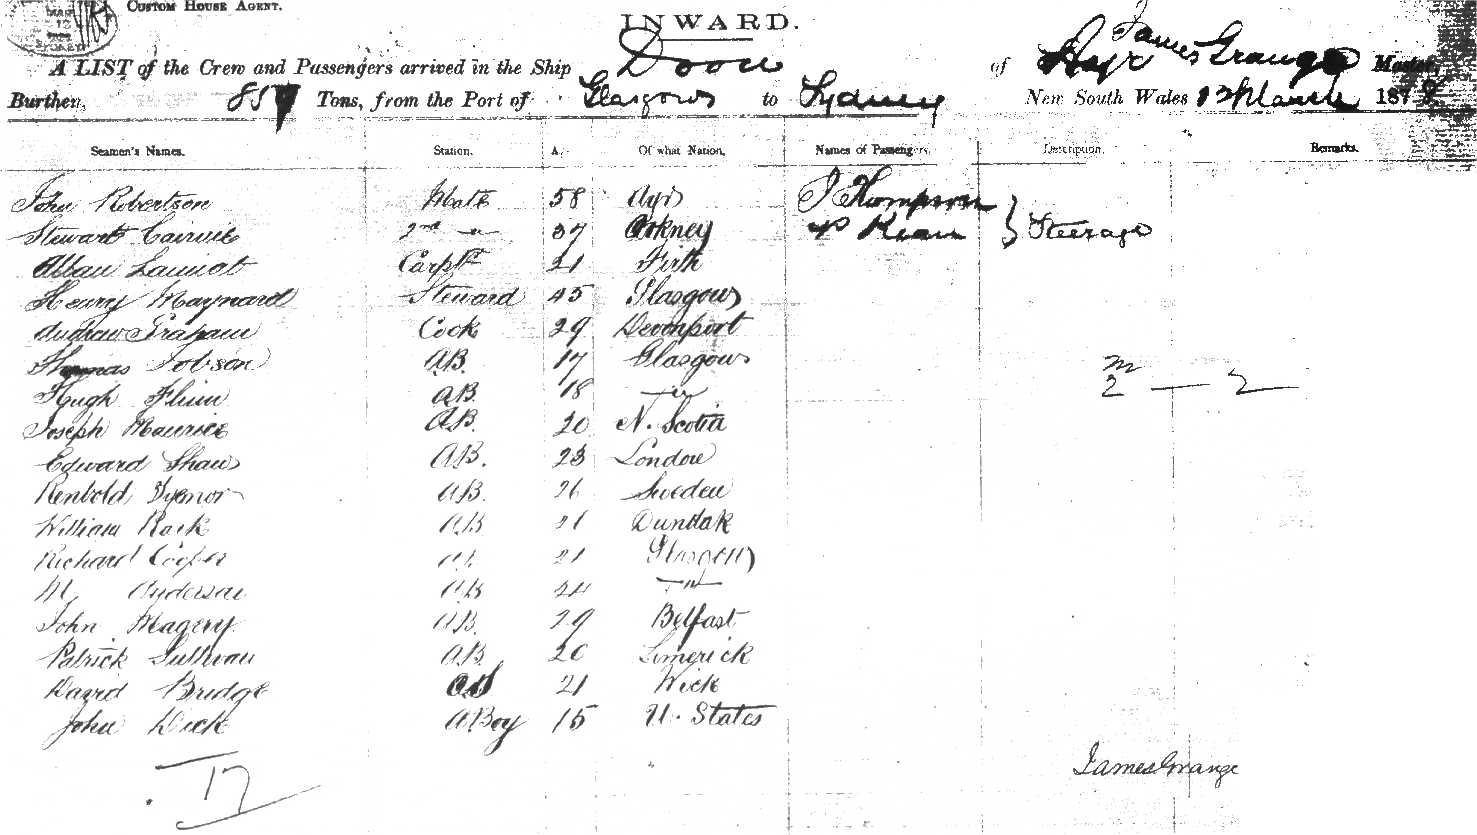 CUSTOM HOUSE AGENT.
INWARD.
A LIST of the Crew and Passengers arrived in the Ship Doon of Ayr James Grange Master,
Burthen, 859 Tons, from the Port of Glasgow to Sydney New South Wales 12 March 1879
Seamen's Names. Station. A. Of what Nation. Names of Passengers. Description. Remarks.
John Robertson Mate 58 Ayr J Thompson
Stewart 2nd 37 Orkney Kean } Steerage
Allan Carptr 21 Firth
Henry Maynard Steward 45 Glasgow
Andrew Graham Cook 29 Devonport
Thomas Jobson AB. 17 Glasgow
m
Hugh Flinn AB. 18 — " 2 — 2
Joseph Maurice AB. 20 N. Scotia
Edward Shaw AB. 23 London
Renbold AB. 26 Sweden
William Rark AB 21 Dundak
Richard Cooper AB 21 Glasgow
M Anderson AB 24 — " —
John Magery AB. 29 Belfast
Patrick Sullivan AB. 20 Limerick
David Bridge OS 21 Wick
John Dick A Boy 15 U. States
17
James Grange